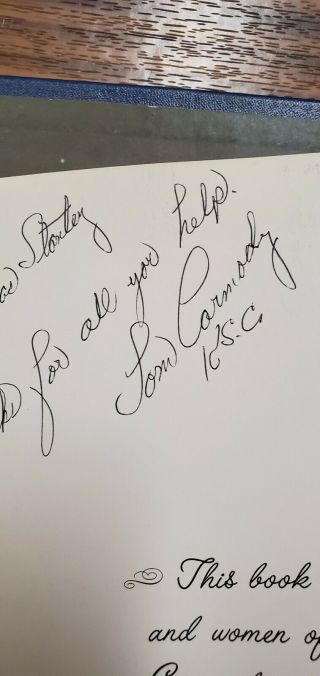 Stanley
for all your help.
Tom Carmody
K.S.C.
This book
and women of